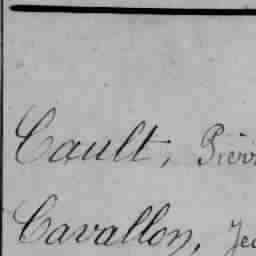 Cault, Pierr
Cavallon, Jea